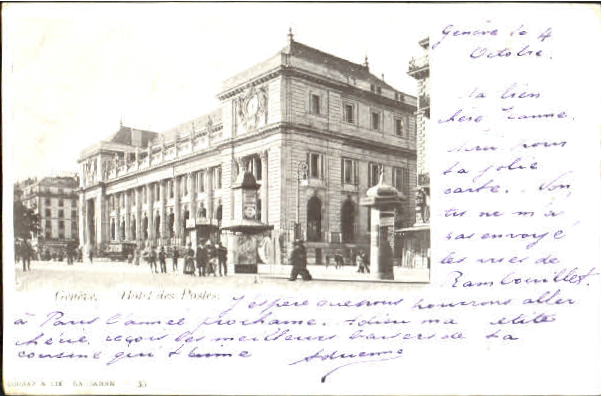 Genève le 4
Octobre.
Ma bien
chère Jeanne.
Merci pour
ta jolie
carte. Non,
tu ne m'a
pas envoyé
les vues de
Rambouillet.
Genève. Hôtel des Postes.
J'espère que nous pourrons aller
à Paris l'année prochaine. Adieu ma petite
chérie, reçois les meilleurs baisers de ta
cousine qui t'aime Adrienne
35